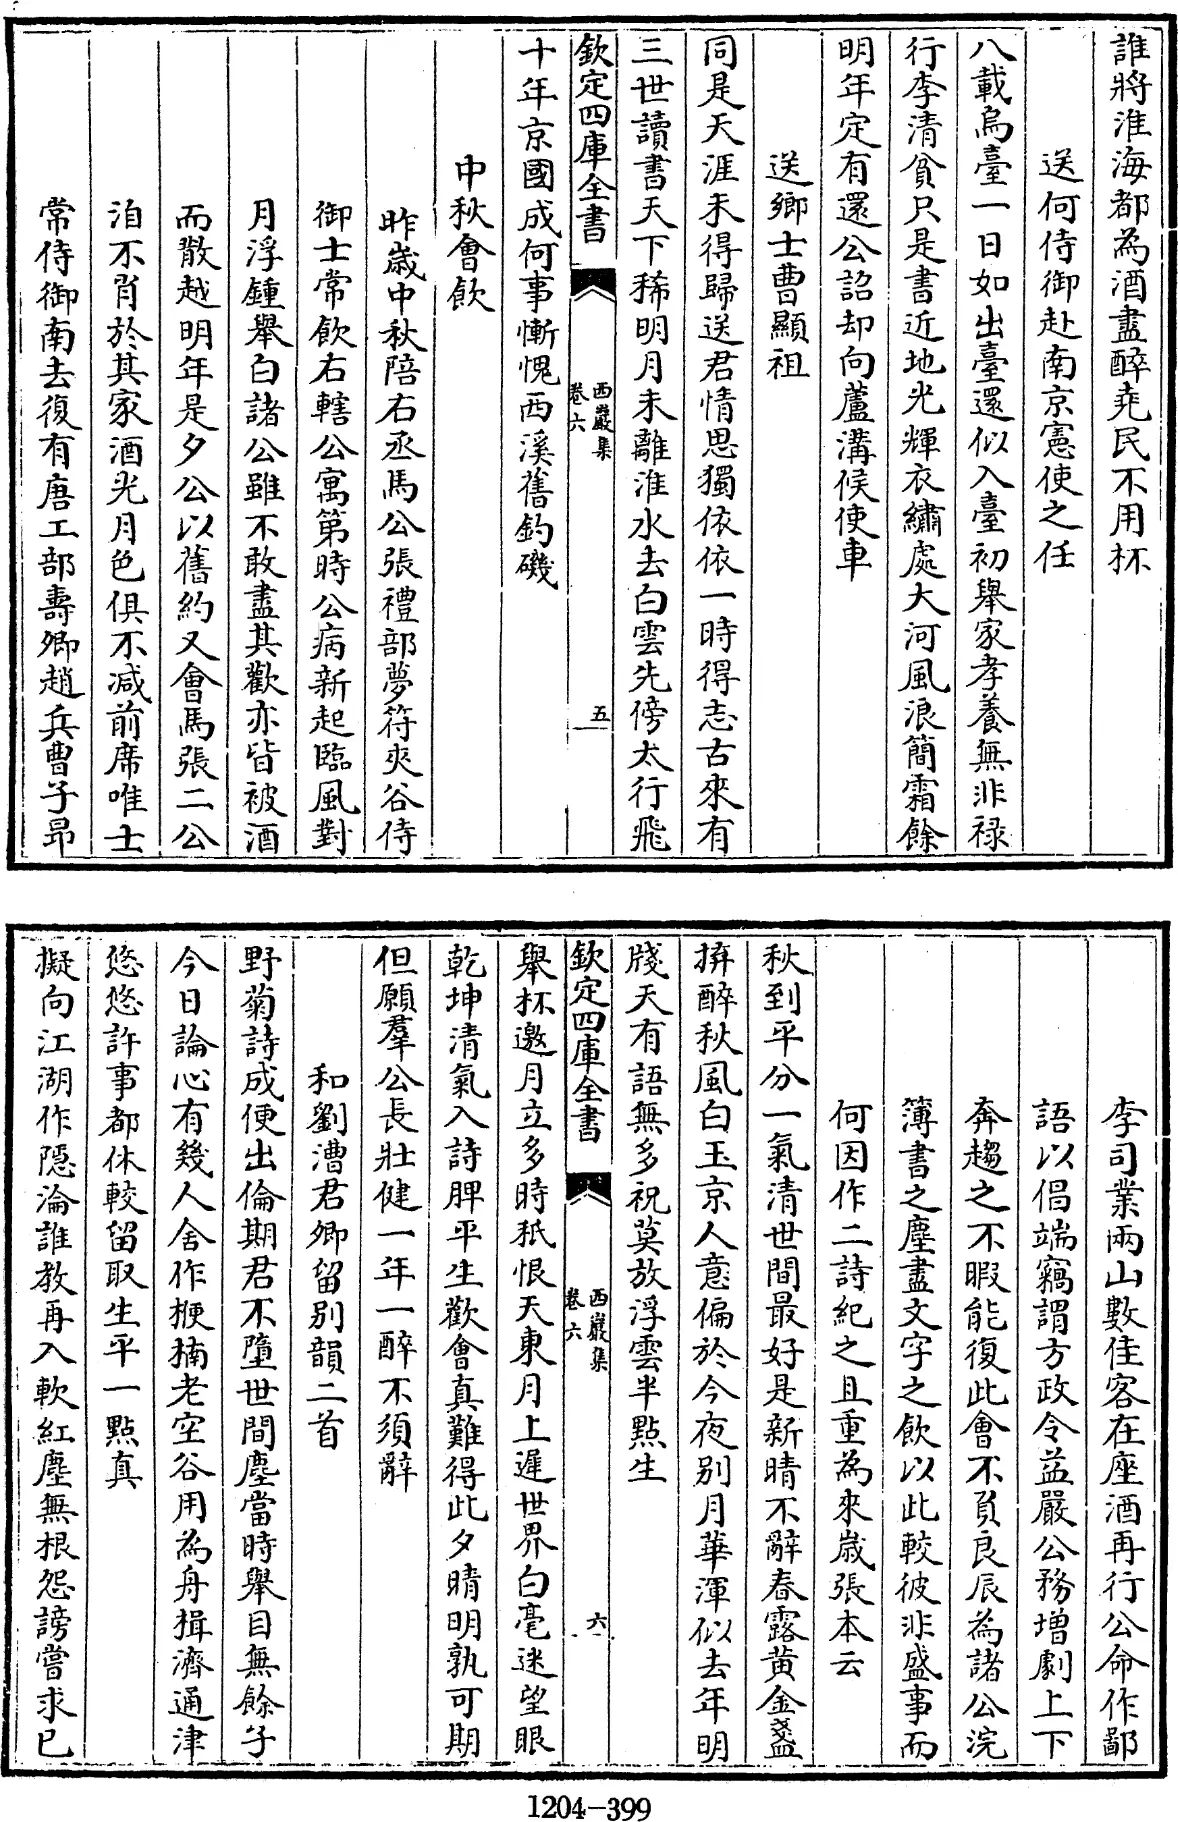 誰將淮海都為酒盡醉堯民不用杯
送何侍御赴南京憲使之任
八載烏臺一日如出臺還似入臺初舉家孝養無非祿
行李清貧只是書近地光輝衣繡處大河風浪簡霜餘
明年定有還公詔却向蘆溝候使車
送鄉士曹顯祖
同是天涯未得歸送君情思獨依依一時得志古來有
三世讀書天下稀明月未離淮水去白雲先傍太行飛
欽定四庫全書
西巖集
卷六
五
十年京國成何事慚愧西溪舊釣磯
中秋會飲
昨歲中秋陪右丞馬公張禮部夢符夾谷侍
御士常飲右轄公寓第時公病新起臨風對
月浮鍾舉白諸公雖不敢盡其歡亦皆被酒
而散越明年是夕公以舊約又會馬張二公
洎不肖於其家酒光月色俱不減前席唯士
常侍御南去復有唐工部壽卿趙兵曹子昂
李司業兩山數佳客在座酒再行公命作鄙
語以倡端竊謂方政令益嚴公務增劇上下
奔趨之不暇能復此會不負良辰為諸公浣
簿書之塵盡文字之飲以此較彼非盛事而
何因作二詩紀之且重為來歲張本云
秋到平分一氣清世間最好是新晴不辭春露黄金盞
拚醉秋風白玉京人意偏於今夜别月華渾似去年明
牋天有語無多祝莫放浮雲半點生
欽定四庫全書
西巖集
卷六
六
舉杯邀月立多時秖恨天東月上遲世界白毫迷望眼
乾坤清氣入詩脾平生歡會真難得此夕晴明孰可期
但願羣公長壯健一年一醉不須辭
和劉漕君卿留别韻二首
野菊詩成便出倫期君不墮世間塵當時舉目無餘子
今日論心有幾人舍作楩楠老空谷用為舟楫濟通津
悠悠許事都休較留取生平一點真
擬向江湖作隱淪誰教再入軟紅塵無根怨謗嘗求已
1204-399